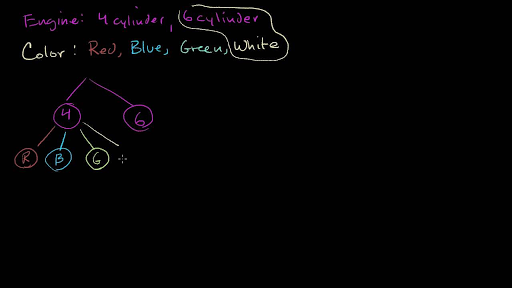 Engine: 4 cylinder, 6 cylinder
Color: Red, Blue, Green, White
4 6
R B G